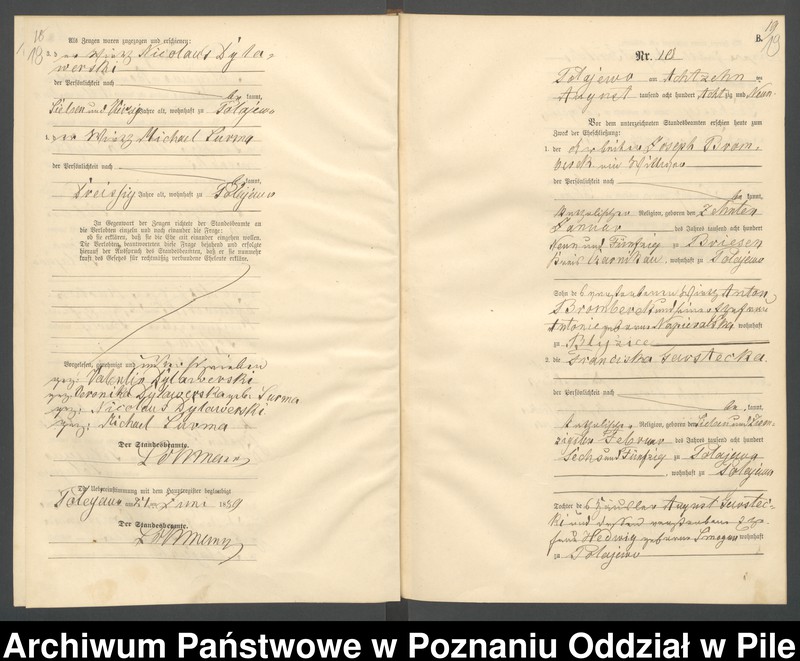 18
13
Als Zeugen waren zugezogen und erschienen:
2. der Wirth Nicolaus Dyta-
werski
der Persönlichkeit nach
kannt,
Sieben und Vierzig Jahre alt, wohnhaft zu Polajewo
der Wirth Michael Surma
der Persönlichkeit nach
kannt,
Dreissig Jahre alt, wohnhaft zu Polajewo
In Gegenwart der Zeugen richtete der Standesbeamte an
die Verlobten einzeln und nach einander die Frage:
ob sie erklären, daß sie die Ehe mit einander eingehen wollen.
Die Verlobten beantworteten diese Frage bejahend und erfolgte
hierauf der Ausspruch des Standesbeamten, daß er sie nunmehr
kraft des Gesetzes für rechtmäßig verbundene Eheleute erkläre.
Vorgelesen, genehmigt und unterschrieben
gez: Valentin Dytawerski
gez: Veronika Dytawerska geb. Surma
gez: Nicolaus Dytawerski
gez: Michael Surma
Der Standesbeamte.
Die Uebereinstimmung mit dem Hauptregister beglaubigt
Polajewo am 21 ten Juni 1889
Der Standesbeamte.
19
13
B.
Nr. 18
Polajewo am Achtzehn ten
August tausend acht hundert Achtzig und Neun
Vor dem unterzeichneten Standesbeamten erschien heute zum
Zweck der Eheschließung:
1. der Arbeiter Joseph Brom-
berek ein Wittwer
der Persönlichkeit nach
kannt,
katholischer Religion, geboren den Zehnten
Januar des Jahres tausend acht hundert
Neun und Fünfzig zu Briesen
Kreis Czarnikau, wohnhaft zu Polajewo
Sohn des verstorbenen Wirth Anton
Bromberek und seiner Ehefrau
Antonie geborene Napieralska wohnhaft
zu
2. die Franciska Gurstecka
der Persönlichkeit nach
kannt,
katholischer Religion, geboren den Sieben und Zwan-
zigsten Februar des Jahres tausend acht hundert
Sechs und Fünfzig zu Polajewo
, wohnhaft zu Polajewo
Tochter des Häusler August Gurstec-
ki und dessen verstorbene Ehe-
frau Hedwig geborene wohnhaft
zu Polajewo
Archiwum Państwowe w Poznaniu Oddział w Pile